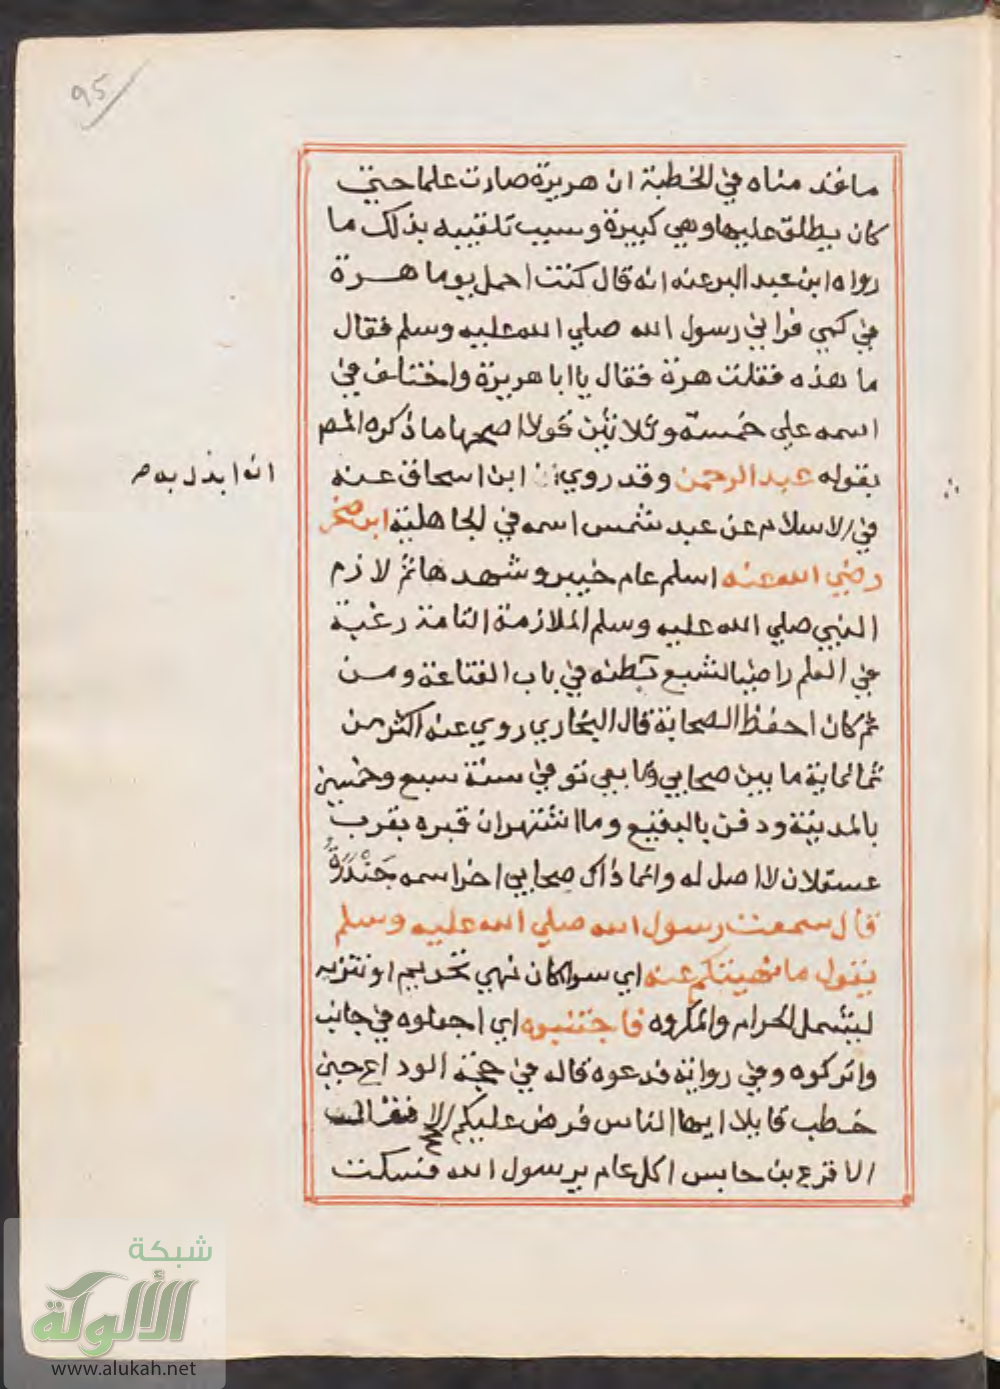 95
ما قد مناه في الخطبة ان هريرة صارت علما حتى
كان يطلق عليها وهي كبيرة وسبب تلقيبه بذلك ما
رواه ابن عبد البر عنه انه قال كنت احمل يوما هرة
في كمي فراني رسول الله صلي الله عليه وسلم فقال
ما هذه فقلت هرة فقال يا ابا هريرة واختلف في
اسمه علي خمسة وثلاثين قولا اصحها ما ذكره المص
بقوله عبد الرحمن وقد روي ابن اسحاق عنه
انه ابدل به
في الاسلام عن عبد شمس اسمه في الجاهلية ابن صخر
رضي الله عنه اسلم عام خيبر وشهدها ثم لازم
النبي صلي الله عليه وسلم الملازمة التامة رغبة
في العلم راضيا بشبع بطنه في باب القناعة ومن
ثم كان احفظ الصحابة قال البخاري روي عنه اكثر من
ثمانماية ما بين صحابي وتابعي توفي سنة سبع وخمسين
بالمدينة ودفن بالبقيع وما اشتهر ان قبره بقرب
عسقلان لا اصل له وانما ذاك صحابي اخر اسمه جَنْدَرَةُ
قال سمعت رسول الله صلي الله عليه وسلم
يقول ما نهيتكم عنه اي سوا كان نهي تحريم او تنزيه
ليشمل الحرام والمكروه فاجتنبوه اي اجعلوه في جانب
واتركوه وفي رواية فدعوه قاله في حجة الوداع حين
خطب قايلا ايها الناس فرض عليكم فقال
الاقرع بن حابس اكل عام يرسول الله فسكت
شبكة
الألوكة
www.alukah.net